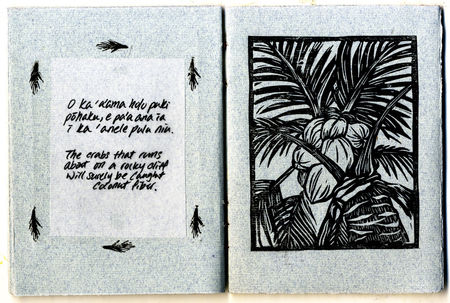 O ka 'a'ama holo pali
pōhaku, e pa'a ana ia
i ka 'ahele pulu niu.
The crabs that runs
about on a rocky cliff
will surely be caught
coconut fiber.